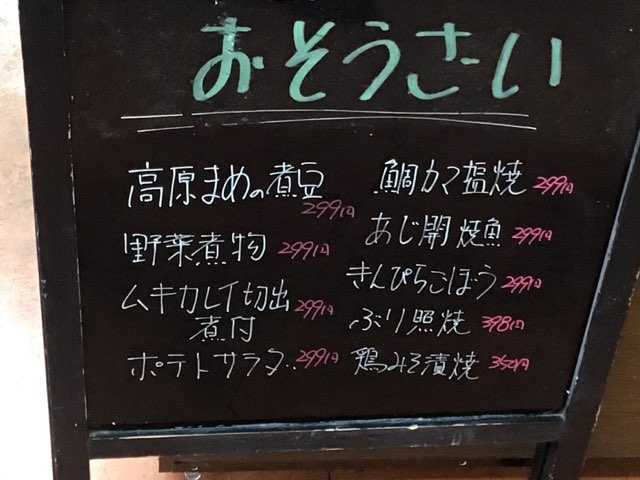 おそうざい
高原まめの煮豆
299円
野菜煮物 299円
ムキカレイ切出 299円
煮付
ポテトサラダ 299円
鯛カマ塩焼 299円
あじ開焼魚 299円
きんぴらごぼう 299円
ぶり照焼 398円
鶏みそ漬焼 350円